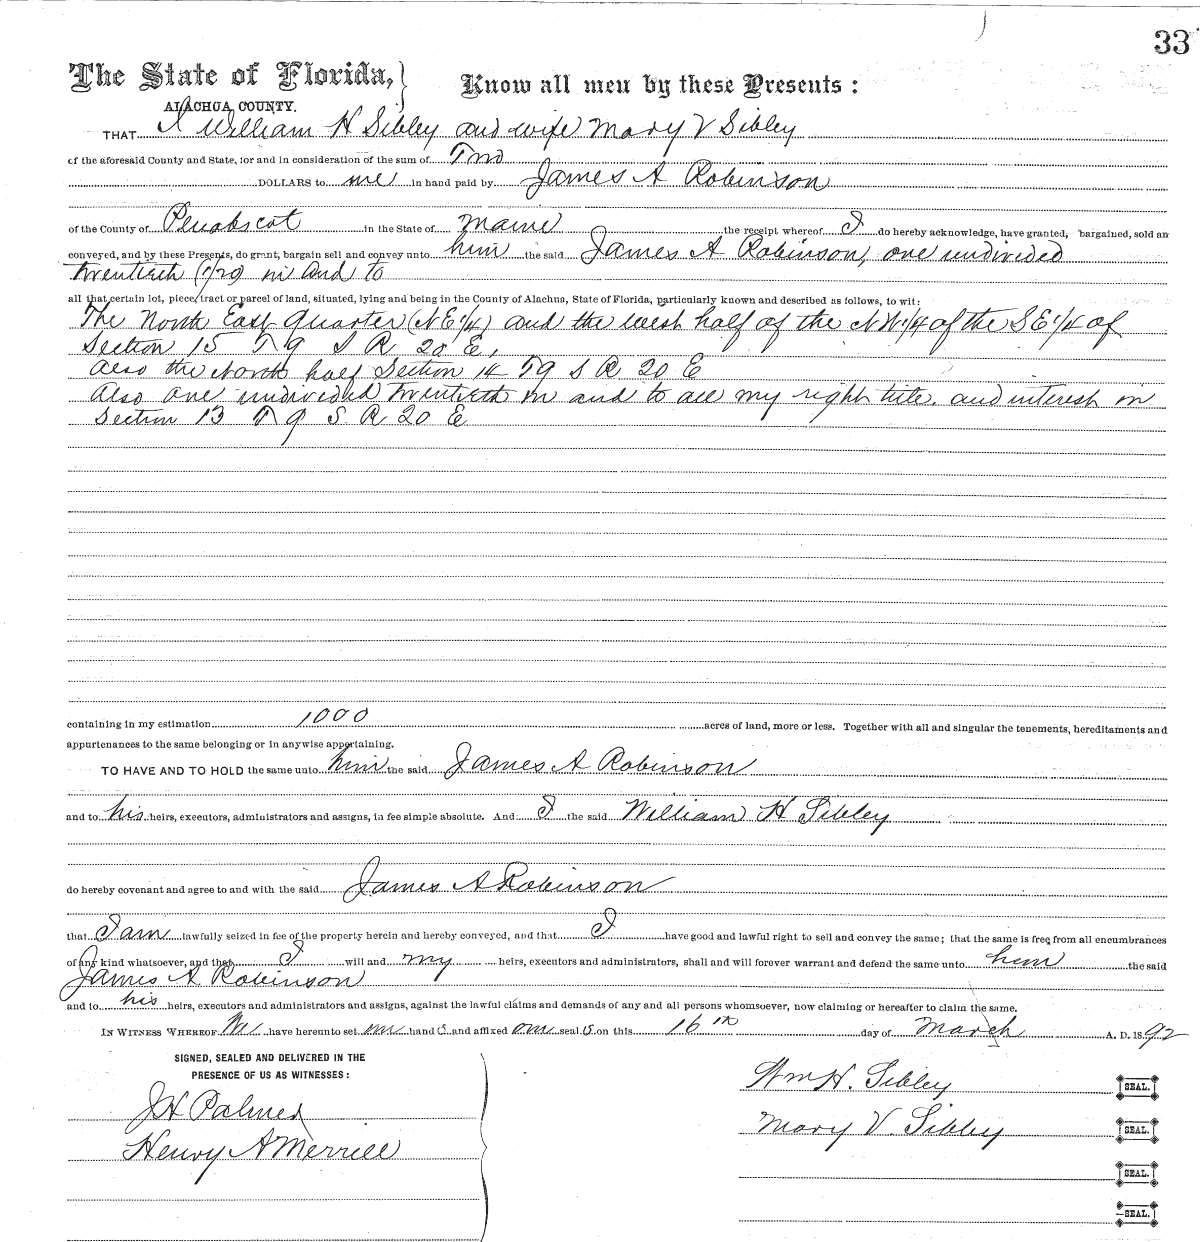 33
The State of Florida,} Know all men by these Presents:
ALACHUA COUNTY.
THAT I William H Sibley and wife Mary V Sibley
of the aforesaid County and State, for and in consideration of the sum of Two
DOLLARS to me in hand paid by James A Robinson
of the County of Penobscot in the State of Maine the receipt whereof I do hereby acknowledge, have granted, bargained, sold an
conveyed, and by these Presents, do grant, bargain sell and convey unto him the said James A Robinson, one undivided
twentieth (1/20) in and to
all that certain lot, piece, tract or parcel of land, situated, lying and being in the County of Alachua, State of Florida, particularly known and described as follows, to wit:
The North East quarter (N E 1/4) and the west half of the N W 1/4 of the S E 1/4 of
Section 15 T 9 S R 20 E,
also the North half Section 14 T 9 S R 20 E
Also one undivided twentieth in and to all my right title, and interest in
Section 13 T 9 S. R 20 E
containing in my estimation 1000 acres of land, more or less. Together with all and singular the tenements, hereditaments and
appurtenances to the same belonging or in anywise appertaining.
TO HAVE AND TO HOLD the same unto him the said James A Robinson
and to his heirs, executors, administrators and assigns, in fee simple absolute. And I the said William H Sibley
do hereby covenant and agree to and with the said James A Robinson
that I am lawfully seized in fee of the property herein and hereby conveyed, and that I have good and lawful right to sell and convey the same; that the same is free from all encumbrances
of any kind whatsoever, and that I will and my heirs, executors and administrators, shall and will forever warrant and defend the same unto him the said
James A Robinson
and to his heirs, executors and administrators and assigns, against the lawful claims and demands of any and all persons whomsoever, now claiming or hereafter to claim the same.
IN WITNESS WHEREOF We have hereunto set our hand s and affixed our seal s on this 16th day of March A. D. 1892
SIGNED, SEALED AND DELIVERED IN THE
PRESENCE OF US AS WITNESSES:
Wm H. Sibley SEAL.
J H Palmer
Mary V. Sibley SEAL.
Henry A Merrill
SEAL.
SEAL.